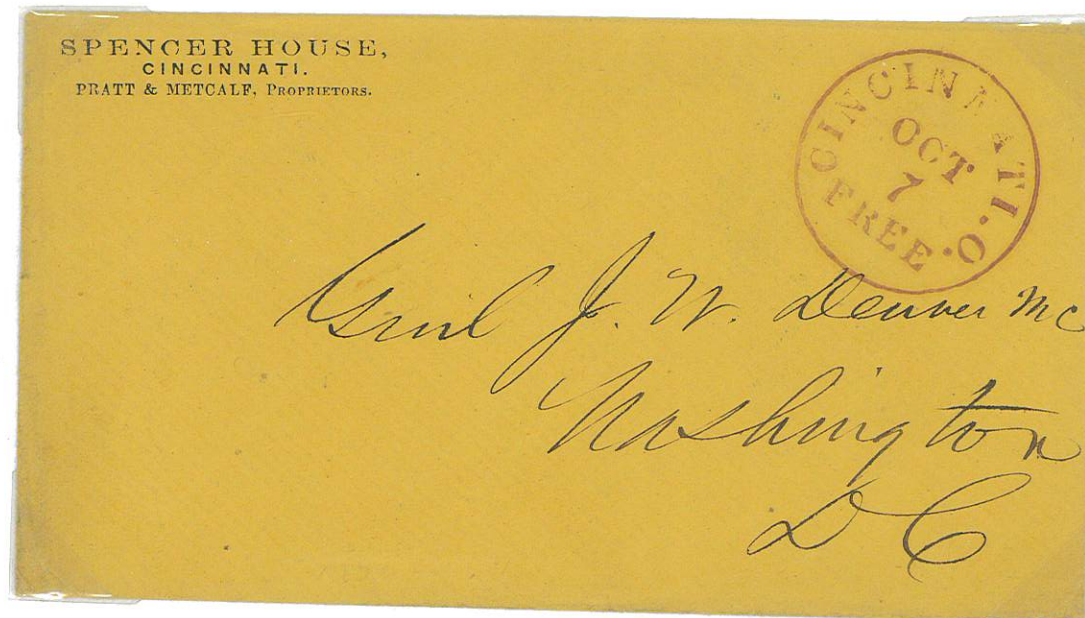 SPENCER HOUSE,
CINCINNATI.
PRATT & METCALF, PROPRIETORS.
CINCINNATI.O.
OCT
7
FREE
Genl J. W. Denver MC
Washington
D C